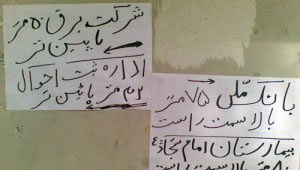 شرکت برق ۵۰ متر
پایین تر
اداره ثبت احوال
۲۰۰ متر پائین تر
بانک ملی ۷۵ متر
بالا سمت راست
بیمارستان امام سجاد ع
متر بالا سمت راست